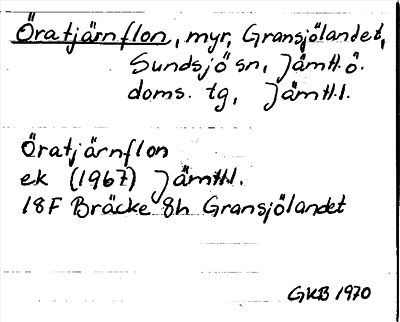 Öratjärnflon, myr, Gransjölandet,
Sundsjö sn, Jämtl. ö.
doms. tg, Jämtl. l.
Öratjärnflon
ek (1967) Jämtl.
18F Bräcke 8h Gransjölandet
GKB 1970